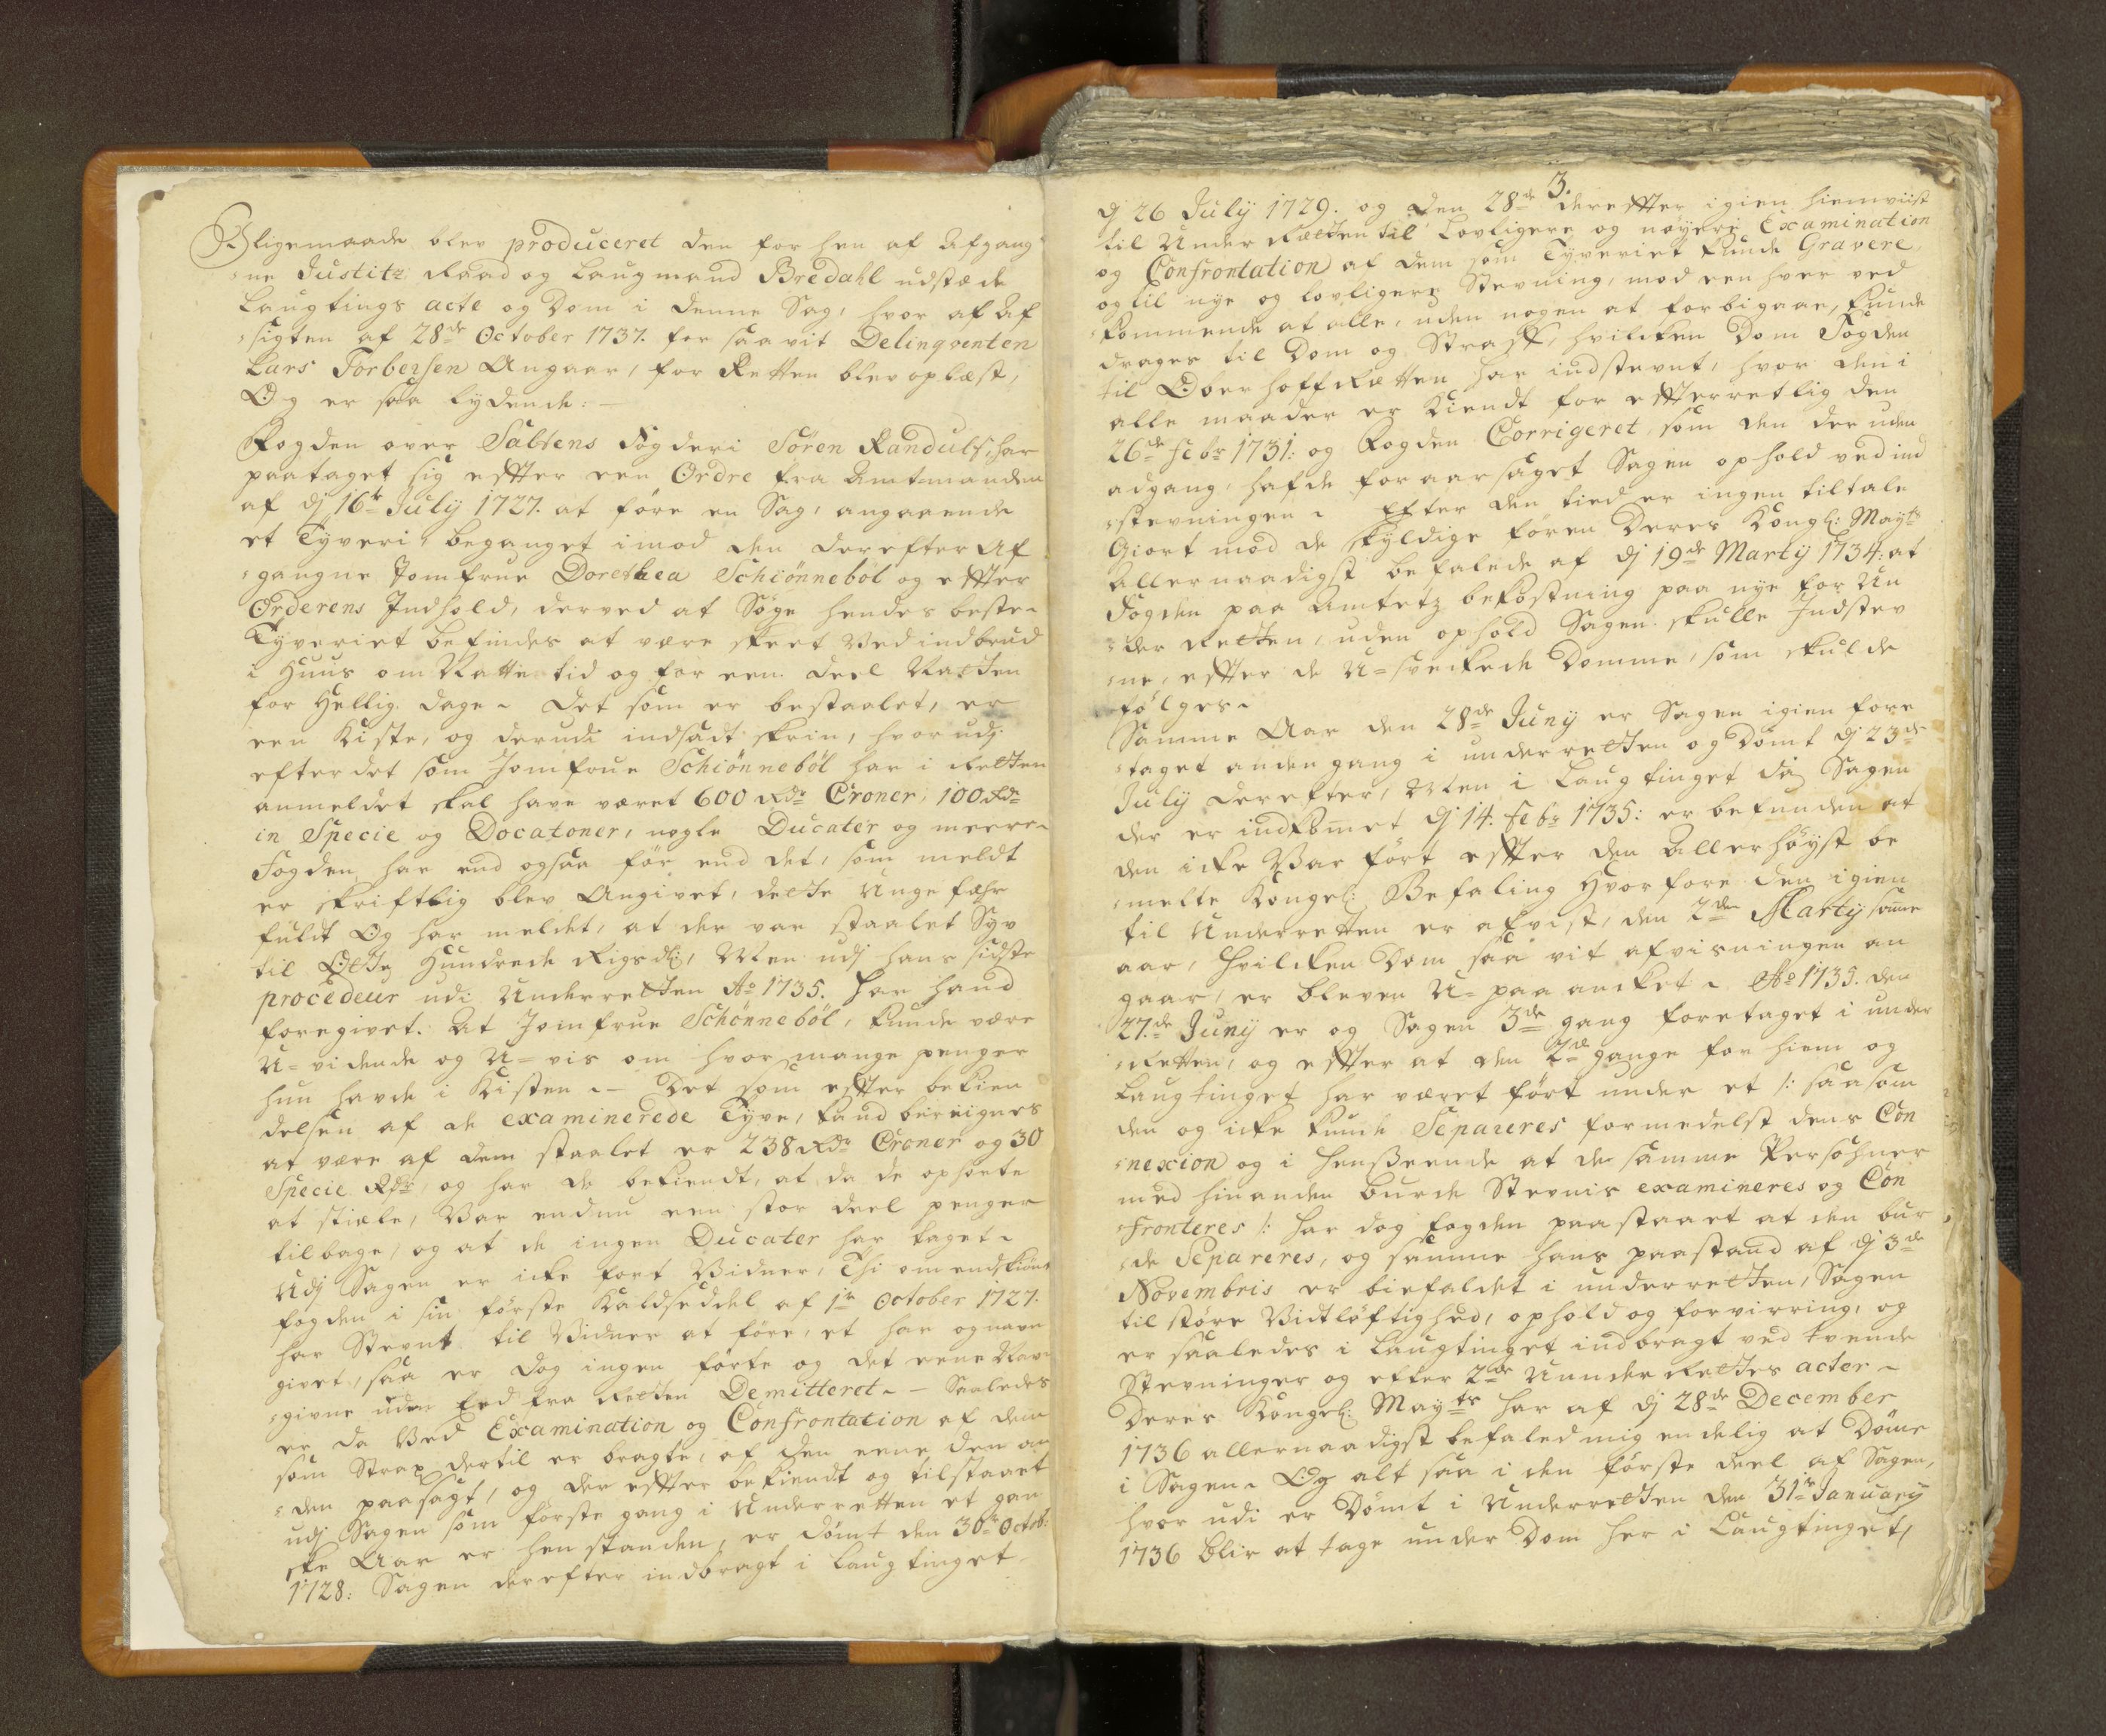 I ligemaade blev produceret den for hen af Afgang
ne Justitz Raad og Laugmand Bredahl udstæde
Laugtings acte og Dom i denne Sag, hvor af Af
sigten af 28de October 1737. for saavit Delinqventen
Lars Torbersen Angaar, for Retten blev oplæst,
Og er saa lydende: —
Fogden over Saltens Fogderi Sören Randulf, har
paataget sig effter een Ordre fra Amtmanden
af dj 16de July 1727. at före en Sag, angaaende
et Tyveri, beganget imod den derefter Af
gangne Jomfrue Dorethea Schiönneböl og effter
Orderens Indhold, derved at Söge hendes beste.
Tyveriet befindes at være skeet Ved indbrud
i Huus om Natte tid og for een deel Natten
for Hellig dage. Det som er bestaalet, er
een Kiste, og derudi indsadt skrin, hvor udj
efter det som Jomfrue Schiönneböl har i Retten
anmeldet skal have været 600 Rdr Croner, 100 Rdr
in Specie og Docatoner, nogle Ducater og meere.
Fogden har end ogsaa för end det, som meldt
er skriftlig blev Angivet, dette Ungefæhr
fuldt Og har meldet, at der var staalet Syv
til Otte Hundrede Rigsdlr, Men udj hans sidste
procedeur udi Underretten Ao 1735. har hand
foregivet. At Jomfrue Schönneböl, kunde være
U-vidende og U-vis om hvor mange penger
hun havde i Kisten. — Det som effter bekien
delsen af de examinerede Tyve, kand bereignes
at være af dem staalet er 238 Rdr Croner og 30
Specie Rdr og har de bekiendt, at da de ophörte
at stiæle, Var endnu een stor deel penger
tilbage, og at de ingen Ducater har taget.
Udj Sagen er icke fört Vidner, Thi omendskiönt
fogden i sin förste Kaldseddel af 1te October 1727.
har Stevnt til Vidner at före, et har og navn
givet, saa er dog ingen förte og det eene Nav
givne uden Eed fra Retten Demitteret. — Saaledes
er da Ved Examination og Confrontation af dem
som Strax dertil er bragte, af den eene den an
den paasagt, og der effter bekiendt og tilstaaet
udj Sagen som förste gang i Underretten et gan
ske Aar er hen standen, er dömt den 30te Octob:
1728: Sagen derefter indbragt i Laugtinget
3.
dj 26 July 1729. og den 28de dereffter igien hiemviist
til Under Retten til Lovligere og nöyere Examination
og Confrontation af dem som Tyveriet kunde Gravere
og til nye og lovligere Stevning, mod een hver ved
kommende at alle, uden nogen at forbigaae, kunde
drages til Dom og Straff, hvilcken Dom Fogden
til Oberhoffretten har indstevnt, hvor den i
alle maader er Kiendt for effterretlig den
26de Febr 1731: og Fogden Corrigeret som den der uden
adgang, hafde foraarsaget Sagen ophold ved ind
stevningen. Efter den tied er ingen tiltale
Giort mod de skyldige förend Deres Kongl: Mayts
Allernaadigst befalede af dj 19de Martij 1734: at
Fogden paa Amtetz bekostning paa nye for Un
der Retten, uden ophold Sagen skulle Indstev
ne, effter de U-svækede Domme, som skulde
fölges.
Samme Aar den 28de Juny er Sagen igien fore
taget anden gang i underretten og Dömt dj 23de
July derefter, Men i Laugtinget da Sagen
der er indkommet dj 14. Febr 1735: er befunden at
den icke Var fört effter den Allerhöyst be
melte Kongel: Befaling Hvorfore den igien
til Underretten er afvist, den 2den Martij samme
aar, Hvilcken Dom saa vit afvisningen an
gaar, er bleven U-paa ancket. Ao 1735. den
27de Juny er og Sagen 3de gang foretaget i under
Retten, og effter at den 2de gange for hiem og
Laugtinget har været fört under et /: saasom
den og icke kunde Separeres formedelst dens Con
nexion og i henseende at de samme Persohner
med hinanden burde Stevnis examineres og Con
fronteres :/ har dog fogden paastaaet at den bur
de Separeres, og samme hans paastand af dj 3de
Novembris er biefaldet i underretten, Sagen
til störe Vidtlöftighed, ophold og forvirring, og
er saaledes i Laugtinget indbragt ved tvende
Stevninger og efter 2de Under Rettes acter.
Deres Kongel: Mayts har af dj 28de December
1736 allernaadigst befaled mig endelig at Döme
i Sagen. Og alt saa i den förste deel af Sagen,
hvor udi er Dömt i Underretten den 31te January
1736 blir at tage under Dom her i Laugtinget,